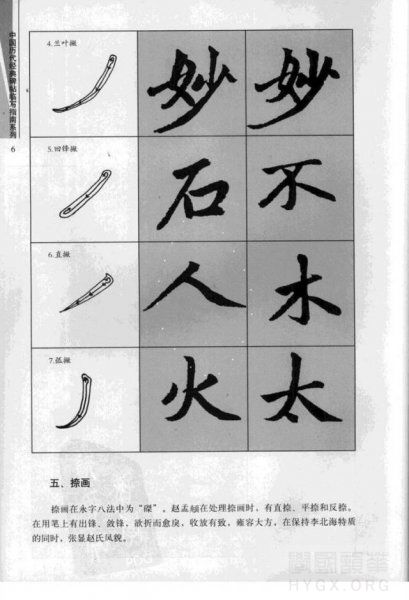 中国历代经典碑帖临写指南系列
6
4.兰叶撇
妙 妙
5.回锋撇
石 不
6.直撇
人 木
7.弧撇
火 太
五、捺画
捺画在永字八法中为“磔”。赵孟頫在处理捺画时，有直捺、平捺和反捺。
在用笔上有出锋、敛锋，欲折而愈戾，收放有致，雍容大方，在保持李北海特质
的同时，张显赵氏风貌。
HYGX.ORG